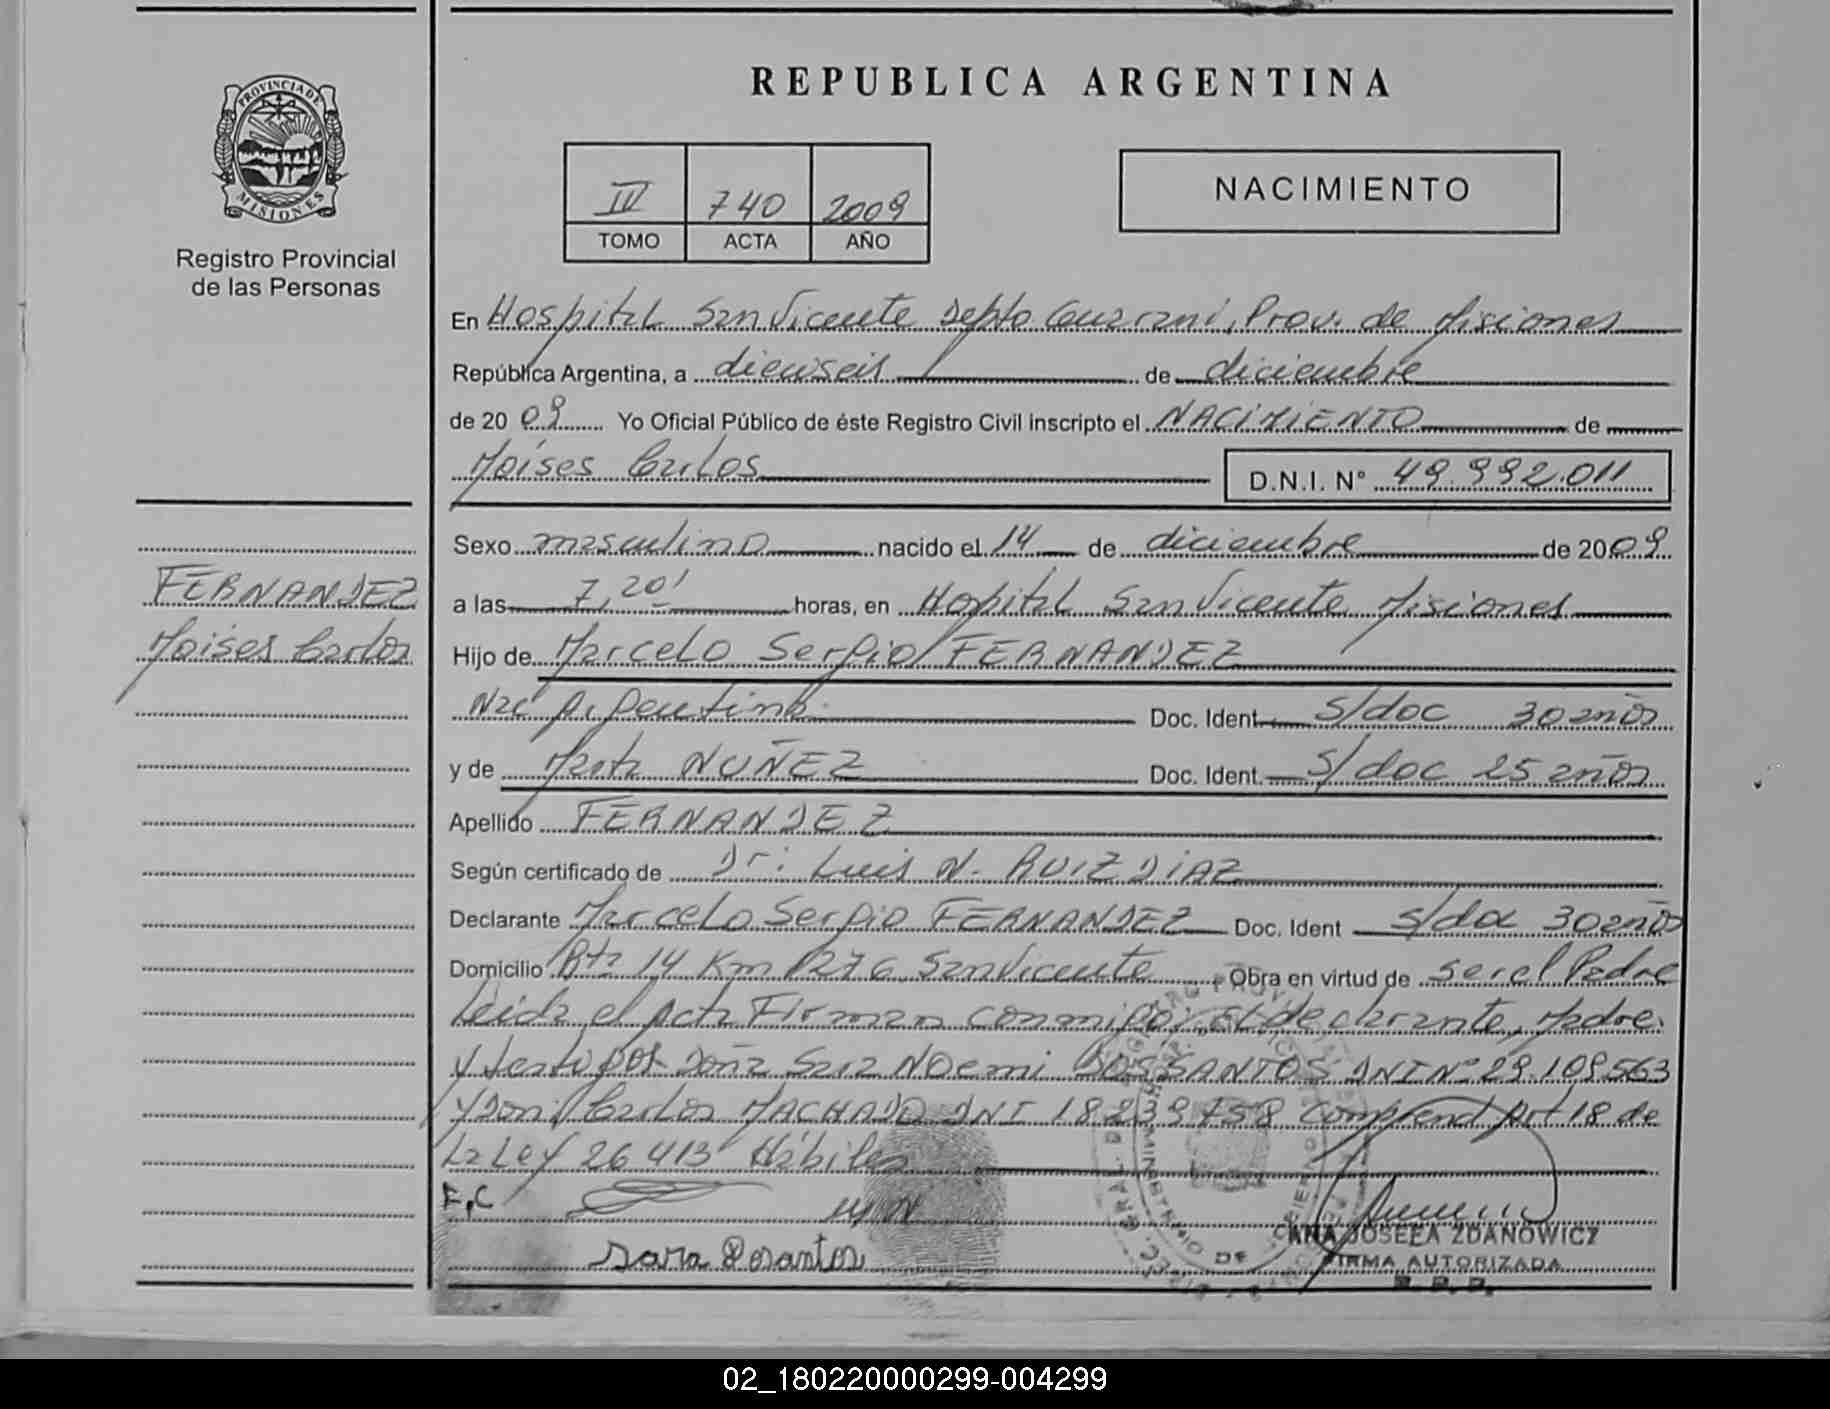 REPUBLICA ARGENTINA
PROVINCIA DE
MISIONES
Registro Provincial
de las Personas
IV 740 2009
TOMO ACTA AÑO
NACIMIENTO
En Hospital San Vicente Depto Guarani, Prov. de Misiones
República Argentina, a dieciseis de diciembre
de 2009 Yo Oficial Público de éste Registro Civil inscripto el NACIMIENTO de
Moises Carlos D.N.I. Nº 49.992.011
Sexo masculino nacido el 14 de diciembre de 2009
FERNANDEZ
Moises Carlos
a las 7,20' horas, en Hospital San Vicente Misiones
Hijo de Marcelo Sergio FERNANDEZ
Nac Argentina Doc. Ident. S/doc 30 años
y de Marta NUÑEZ Doc. Ident. S/doc 25 años
Apellido FERNANDEZ
Según certificado de Dr: Luis N. RUIZ DIAZ
Declarante Marcelo Sergio FERNANDEZ Doc. Ident S/doc 30 años
Domicilio Rta 14 Km 1276 San Vicente Obra en virtud de ser el Padre
Leida el Acta Firman conmigo: El declarante, Madre
y testigos Doña Sara NOemi DOS SANTOS DNI Nº 29.109.563
y Don Carlos MACHADO DNI 18239758 comprend Art 18 de
La Ley 26413 Hábiles
F,C MN
Sara Dosantos
ANA JOSEFA ZDANOWICZ
FIRMA AUTORIZADA
R. P. P.
02_180220000299-004299